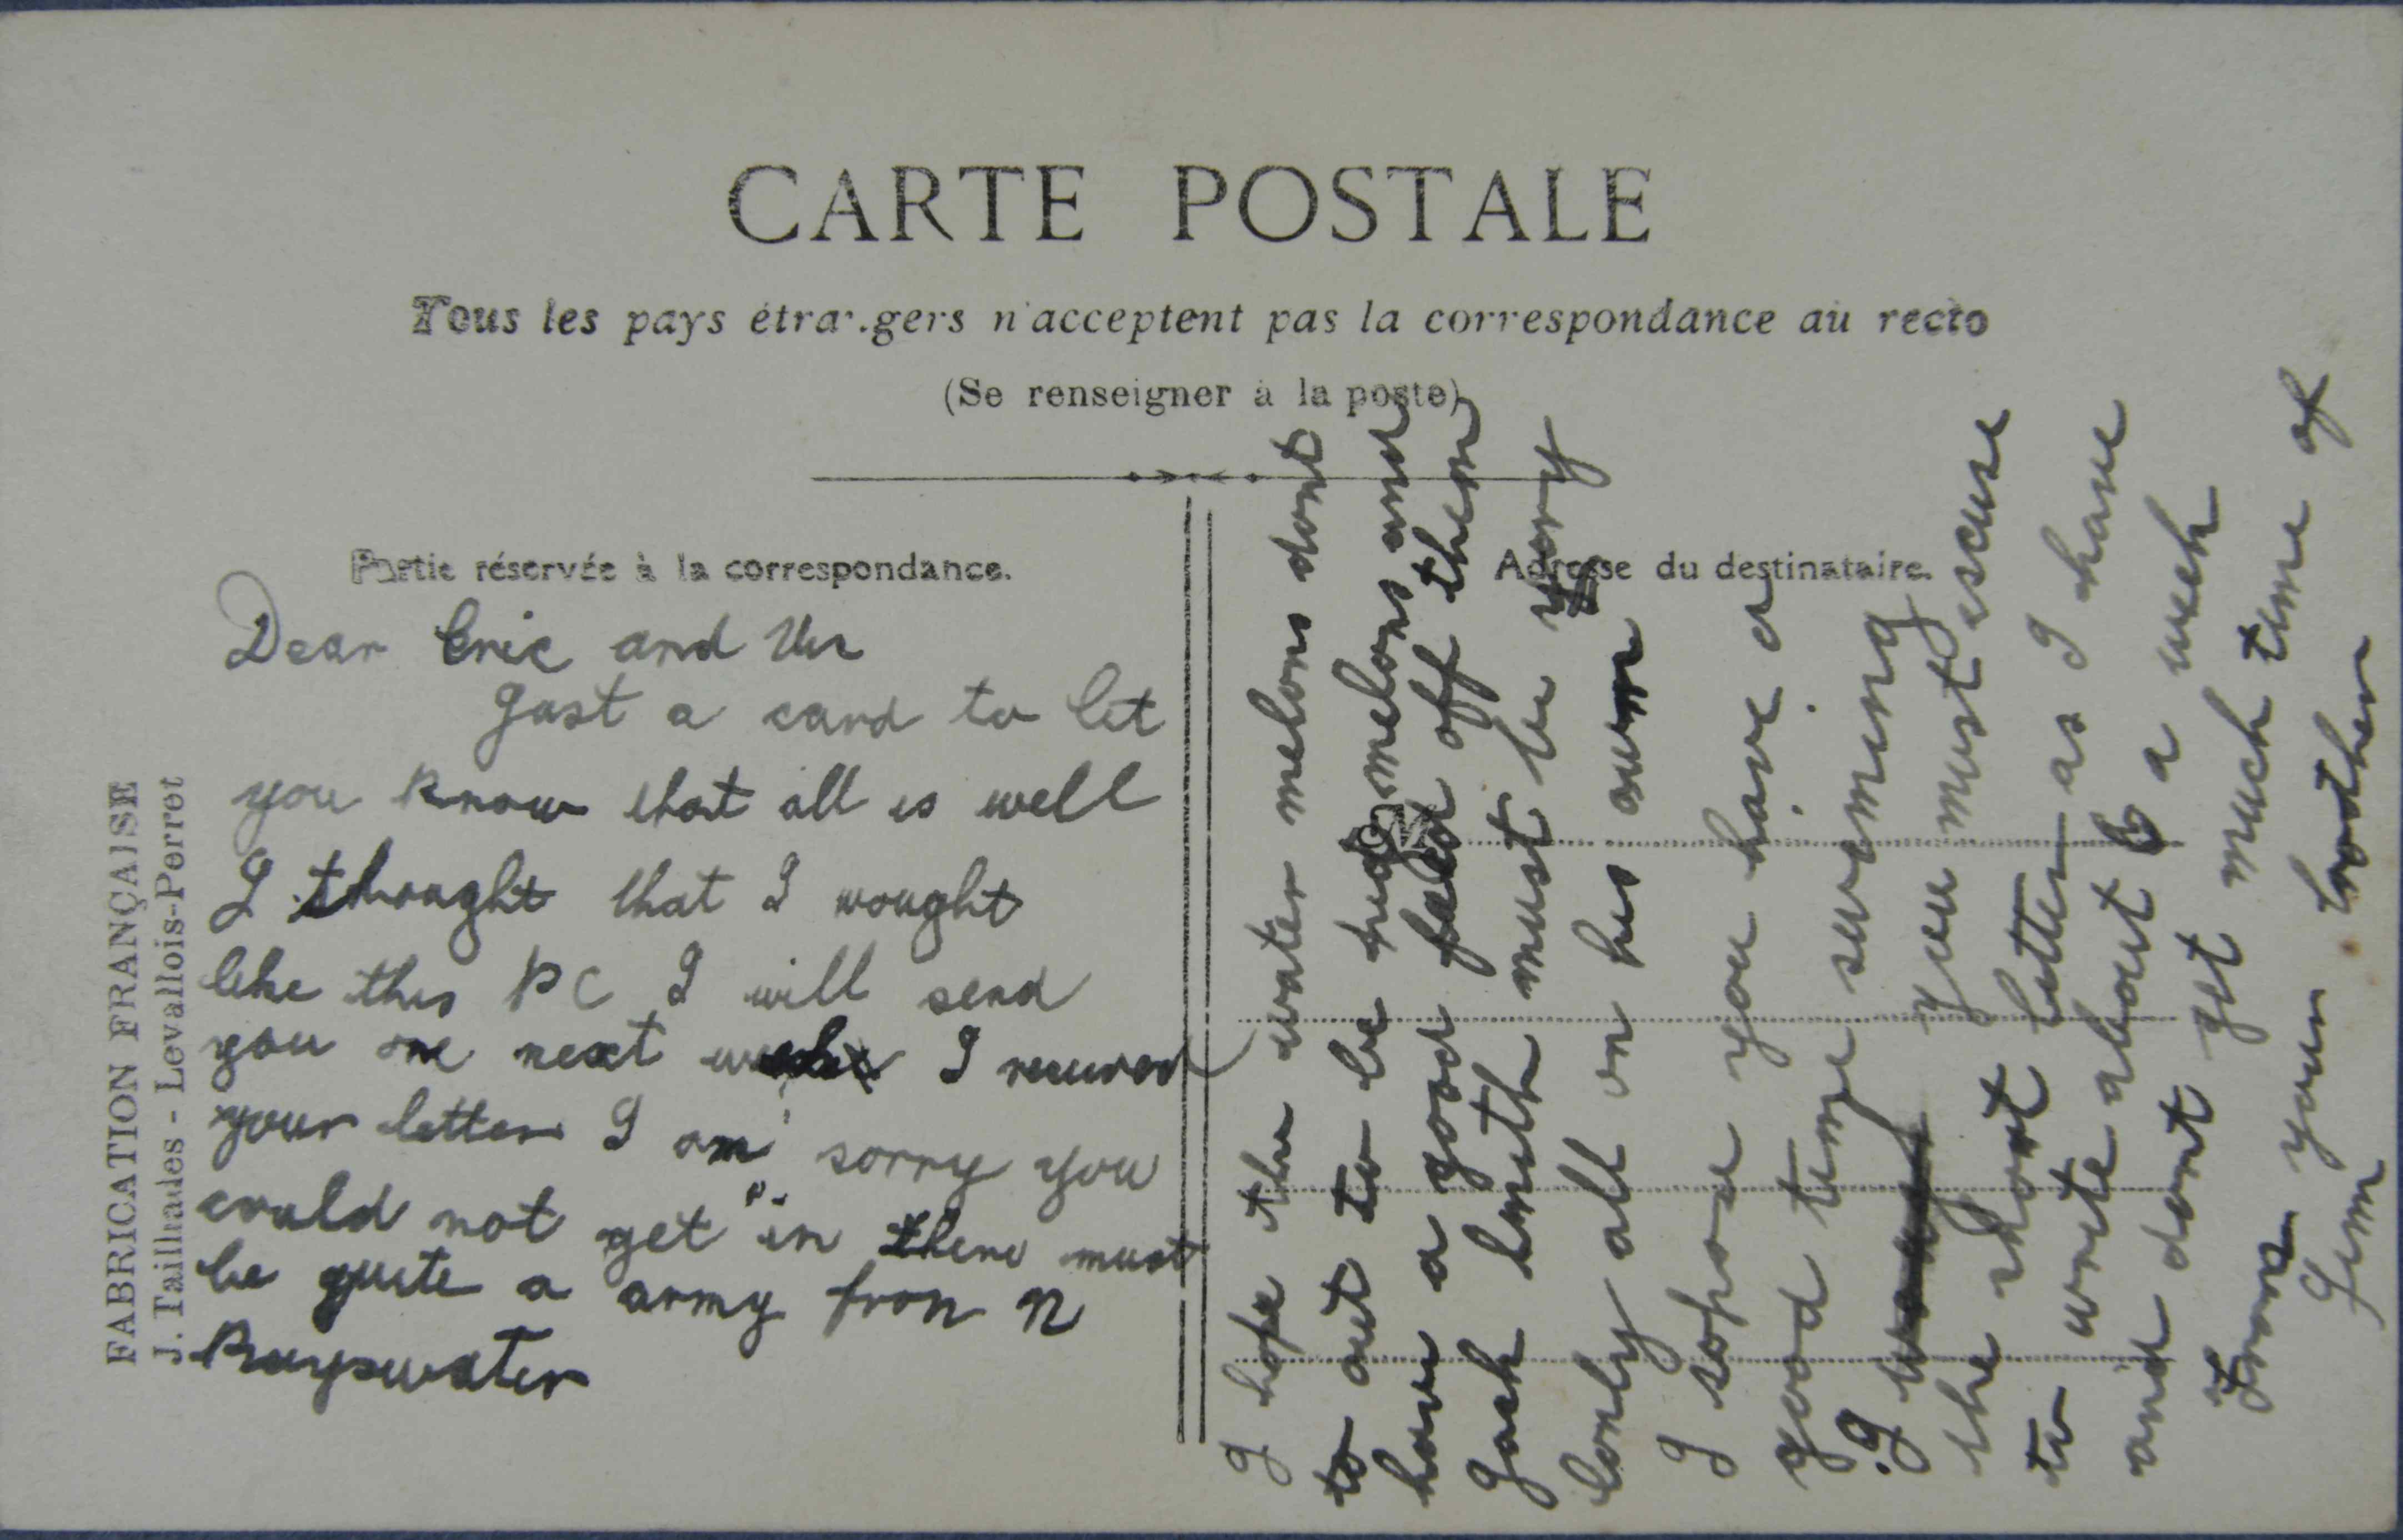 CARTE POSTALE
Tous les pays étrangers n'acceptent pas la correspondance au recto
(Se renseigner à la poste)
Partie réservée à la correspondance.
Adresse du destinataire.
FABRICATION FRANÇAISE
J. Tailhades - Levallois-Perret
Dear Eric and Ver
Just a card to let
you know that all is well
I thought that I wought
like this PC I will send
you one next week I recived
your letter I am sorry you
could not get in there must
be quite a army fron N
Bayswater
I hope the water melons dont
to out to be melons and
have a good feed off them
Jack Smith must be very
lonly all on his own
I sopose you have a
good time swiming
I you must escuse
the short letter as I have
to write about 6 a week
and dont get much time of
From your brother
Jim